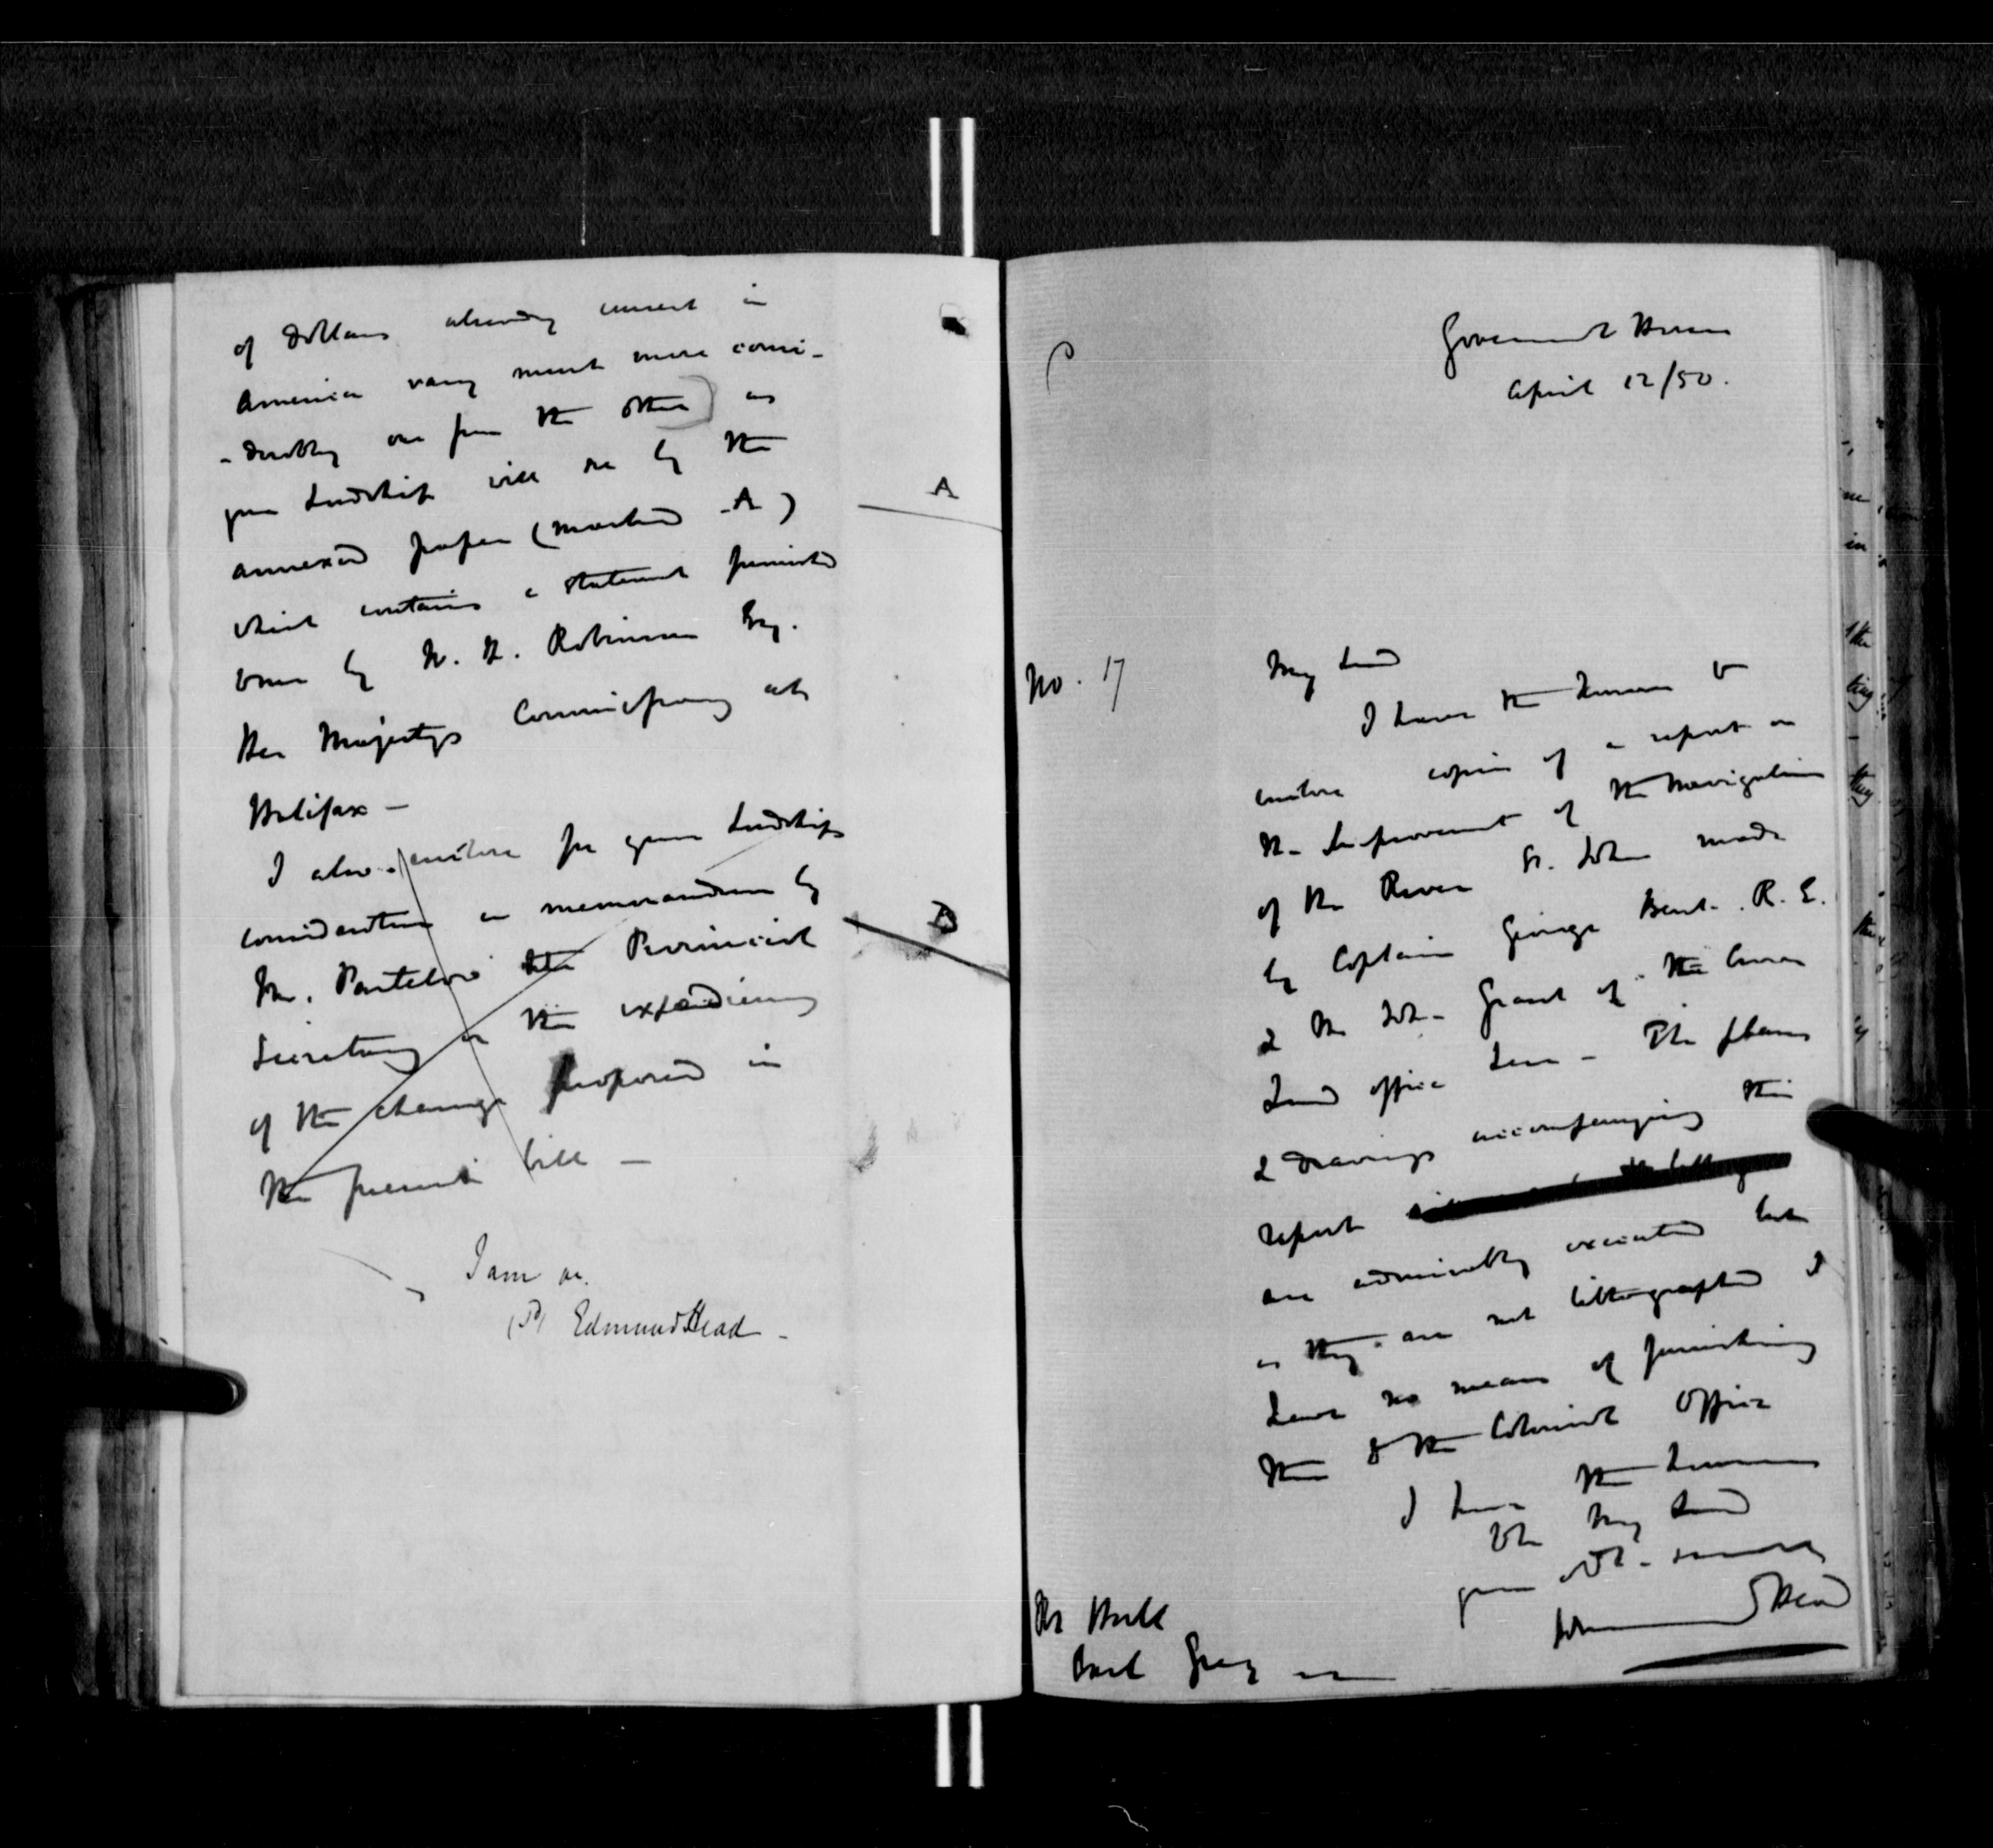 of dollars already current in
America vary much more consi-
-derably one from the other) as
your Lordship will see by the
annexed paper (marked A)
A
which contains a statement furnished
to me by W. H. Robinson Esq.
Her Majestys Commissary at
Halifax —
I also enclose for your Lordships
consideration a memorandum by
Mr. Partelow the Provincial
B
Secretary on the expediency
of the change proposed in
the present bill —
I am &c.
(Sd) Edmund Head -
Government House
April 12/50.
No. 17
My Lord
I have the honor to
enclose copies of a report on
the Improvement of the Navigation
of the River St. John made
by Captain George R. E.
& Mr Joh- Grant of the Crown
Land office here - The plans
& drawings accompanying this
report
are admirably executed but
as they are not lithographed I
have no means of furnishing
them to the Colonial Office
I have the honor
to be My Lord
your obt.
Head
Rt Honble
Earl Grey